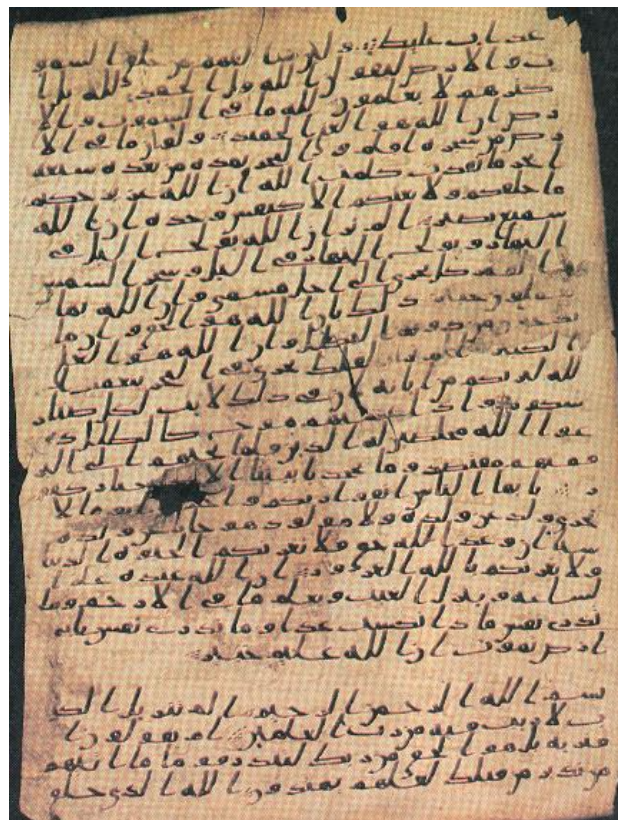 عذاب غليظ ولئن سالتهم من خلق السمو
ت والارض ليقولن الله قل الحمد لله بل ا
كثرهم لا يعلمون لله ما في السموت والا
رض ان الله هو الغني الحميد ولو ان ما في الا
رض من شجرة اقلم والبحر يمده من بعده سبعة
ابحر ما نفدت كلمت الله ان الله عزيز حكيم
ما خلقكم ولا بعثكم الا كنفس وحدة ان الله
سميع بصير الم تر ان الله يولج اليل في
النهار ويولج النهار في اليل وسخر الشمس
والقمر كل يجري الى اجل مسمى وان الله بما
تعملون خبير ذلك بان الله هو الحق وان ما
يدعون من دونه البطل وان الله هو العلي
الكبير الم تر ان الفلك تجري في البحر بنعمت ا
لله ليريكم من ايته ان في ذلك لايت لكل صبار
شكور واذا غشيهم موج كالظلل د
عوا الله مخلصين له الدين فلما نجيهم الى البر
فمنهم مقتصد وما يجحد بايتنا الا ختار كفو
ر يايها الناس اتقوا ربكم واخشوا يوما لا
يجزي والد عن ولده ولا مولود هو جاز عن والده
شيا ان وعد الله حق فلا تغرنكم الحيوة الدنيا
ولا يغرنكم بالله الغرور ان الله عنده علم ا
لساعة وينزل الغيث ويعلم ما في الارحم وما
تدري نفس ماذا تكسب غدا وما تدري نفس باي
ارض تموت ان الله عليم خبير
بسم الله الرحمن الرحيم الم تنزيل الكت
ب لا ريب فيه من رب العلمين ام يقولون ا
فتريه بل هو الحق من ربك لتنذر قوما ما اتيهم
من نذير من قبلك لعلهم يهتدون الله الذي خلق